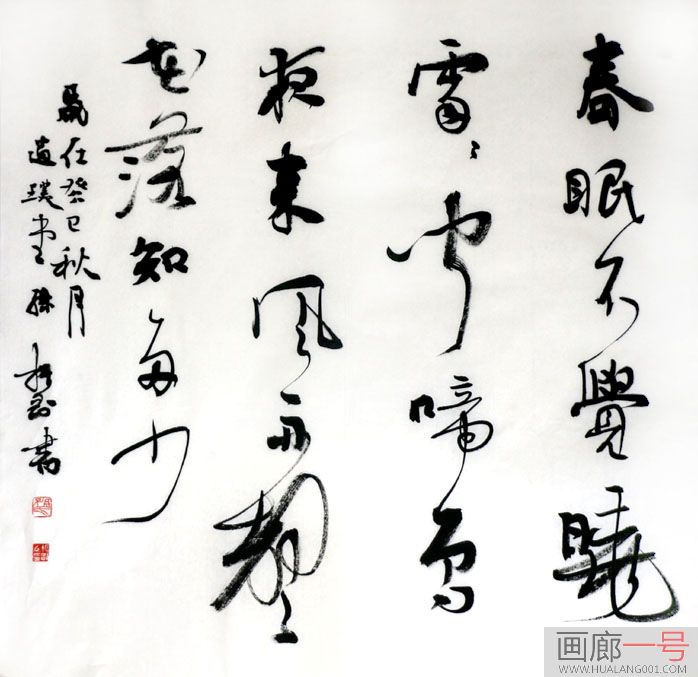 春眠不覺曉
處〻聞啼鳥
夜来風雨聲
花落知多少
歲在癸巳秋月
璞堂 書
画廊一号
WWW.HUALANG001.COM